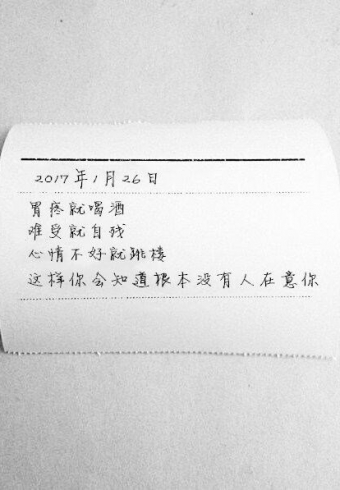 2017年1月26日
胃疼就喝酒
难受就自残
心情不好就跳楼
这样你会知道根本没有人在意你